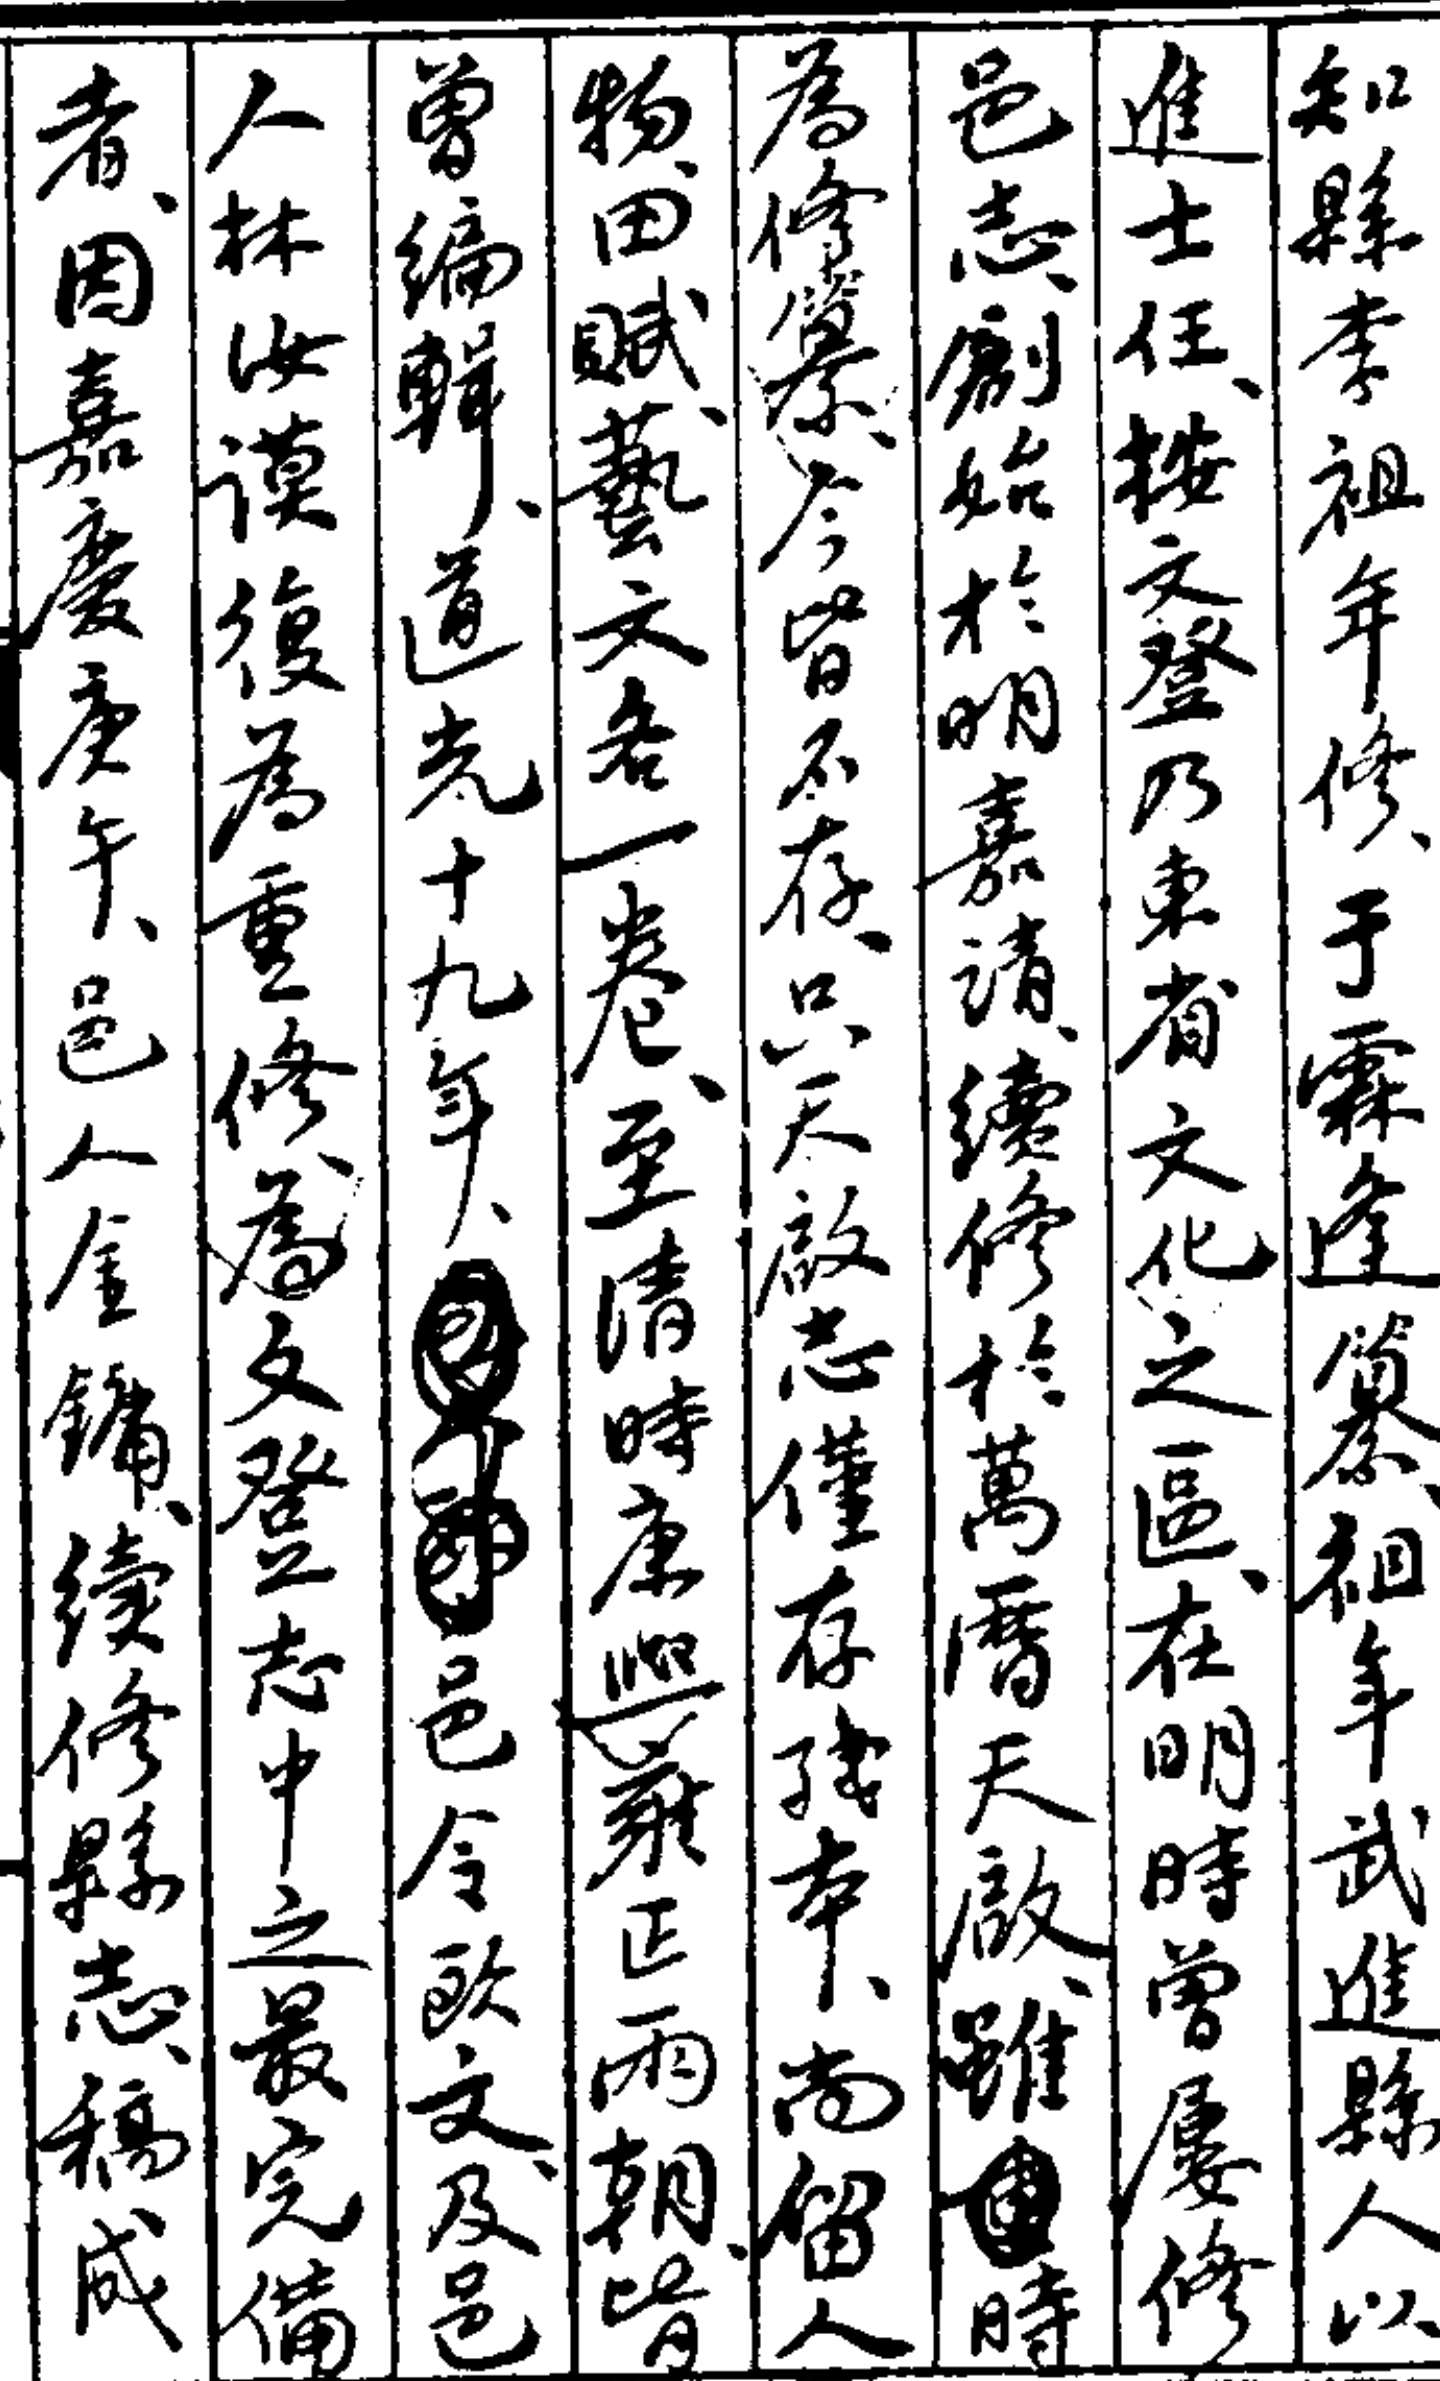 知縣李祖年修、于霖逢纂、祖年武進縣人以
進士任、按文登乃東省文化之區、在明時曾屢修
邑志、創始於明嘉靖、續修於萬曆天啟、雖時
為修纂、今皆不存、只天啟志僅存殘本、尚留人
物、田賦、藝文各一卷、至清時康熙雍正兩朝、皆
曾編輯、道光十九年、邑令欧文、及邑
人林汝謨復為重修、為文登志中之最完備
者、因嘉慶庚午、邑人金鏞、續修縣志、稿成